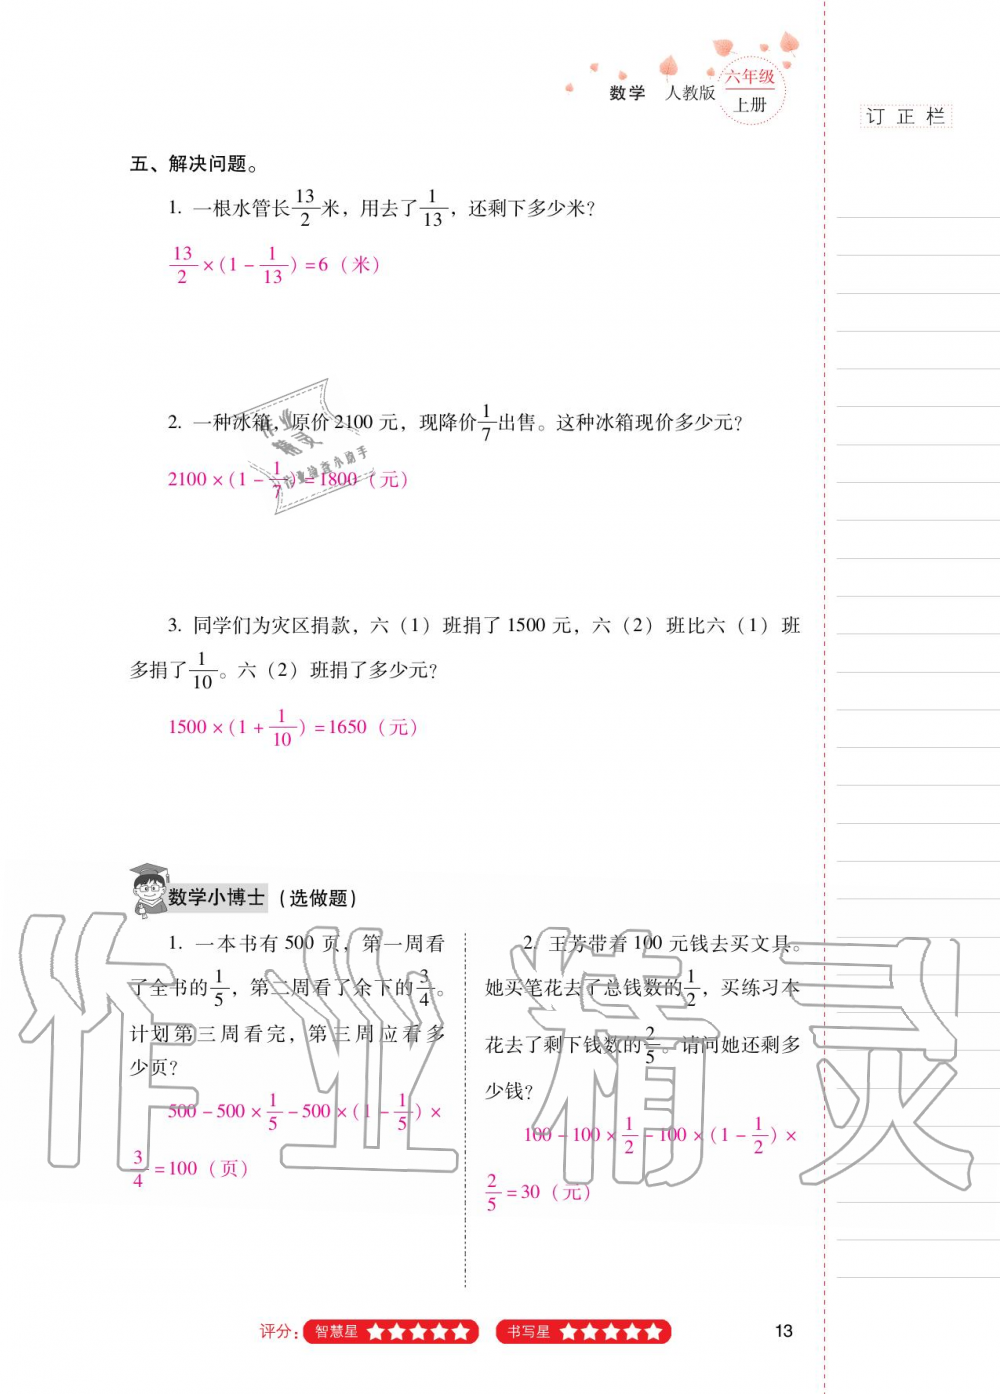 数学 人教版 六年级
上册
订正栏
五、解决问题。
1. 一根水管长13/2米，用去了1/13，还剩下多少米？
13/2×(1-1/13)=6（米）
2. 一种冰箱，原价2100元，现降价1/7出售。这种冰箱现价多少元？
2100×(1-1/7)=1800（元）
作业
精灵
作业检查小助手
3. 同学们为灾区捐款，六（1）班捐了1500元，六（2）班比六（1）班
多捐了1/10。六（2）班捐了多少元？
1500×(1+1/10)=1650（元）
数学小博士（选做题）
1. 一本书有500页，第一周看
了全书的1/5，第二周看了余下的3/4。
计划第三周看完，第三周应看多
少页？
500-500×1/5-500×(1-1/5)×
3/4=100（页）
2. 王芳带着100元钱去买文具。
她买笔花去了总钱数的1/2，买练习本
花去了剩下钱数的2/5。请问她还剩多
少钱？
100-100×1/2-100×(1-1/2)×
2/5=30（元）
作业精灵
评分：智慧星 ★★★★★ 书写星 ★★★★★
13